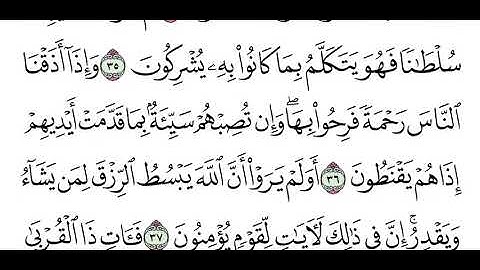 سُلْطَٰنًا فَهُوَ يَتَكَلَّمُ بِمَا كَانُوا۟ بِهِۦ يُشْرِكُونَ ٣٥ وَإِذَآ أَذَقْنَا
ٱلنَّاسَ رَحْمَةً فَرِحُوا۟ بِهَا ۖ وَإِن تُصِبْهُمْ سَيِّئَةٌۢ بِمَا قَدَّمَتْ أَيْدِيهِمْ
إِذَا هُمْ يَقْنَطُونَ ٣٦ أَوَلَمْ يَرَوْا۟ أَنَّ ٱللَّهَ يَبْسُطُ ٱلرِّزْقَ لِمَن يَشَآءُ
وَيَقْدِرُ ۚ إِنَّ فِى ذَٰلِكَ لَءَايَٰتٍ لِّقَوْمٍ يُؤْمِنُونَ ٣٧ فَـَٔاتِ ذَا ٱلْقُرْبَىٰ